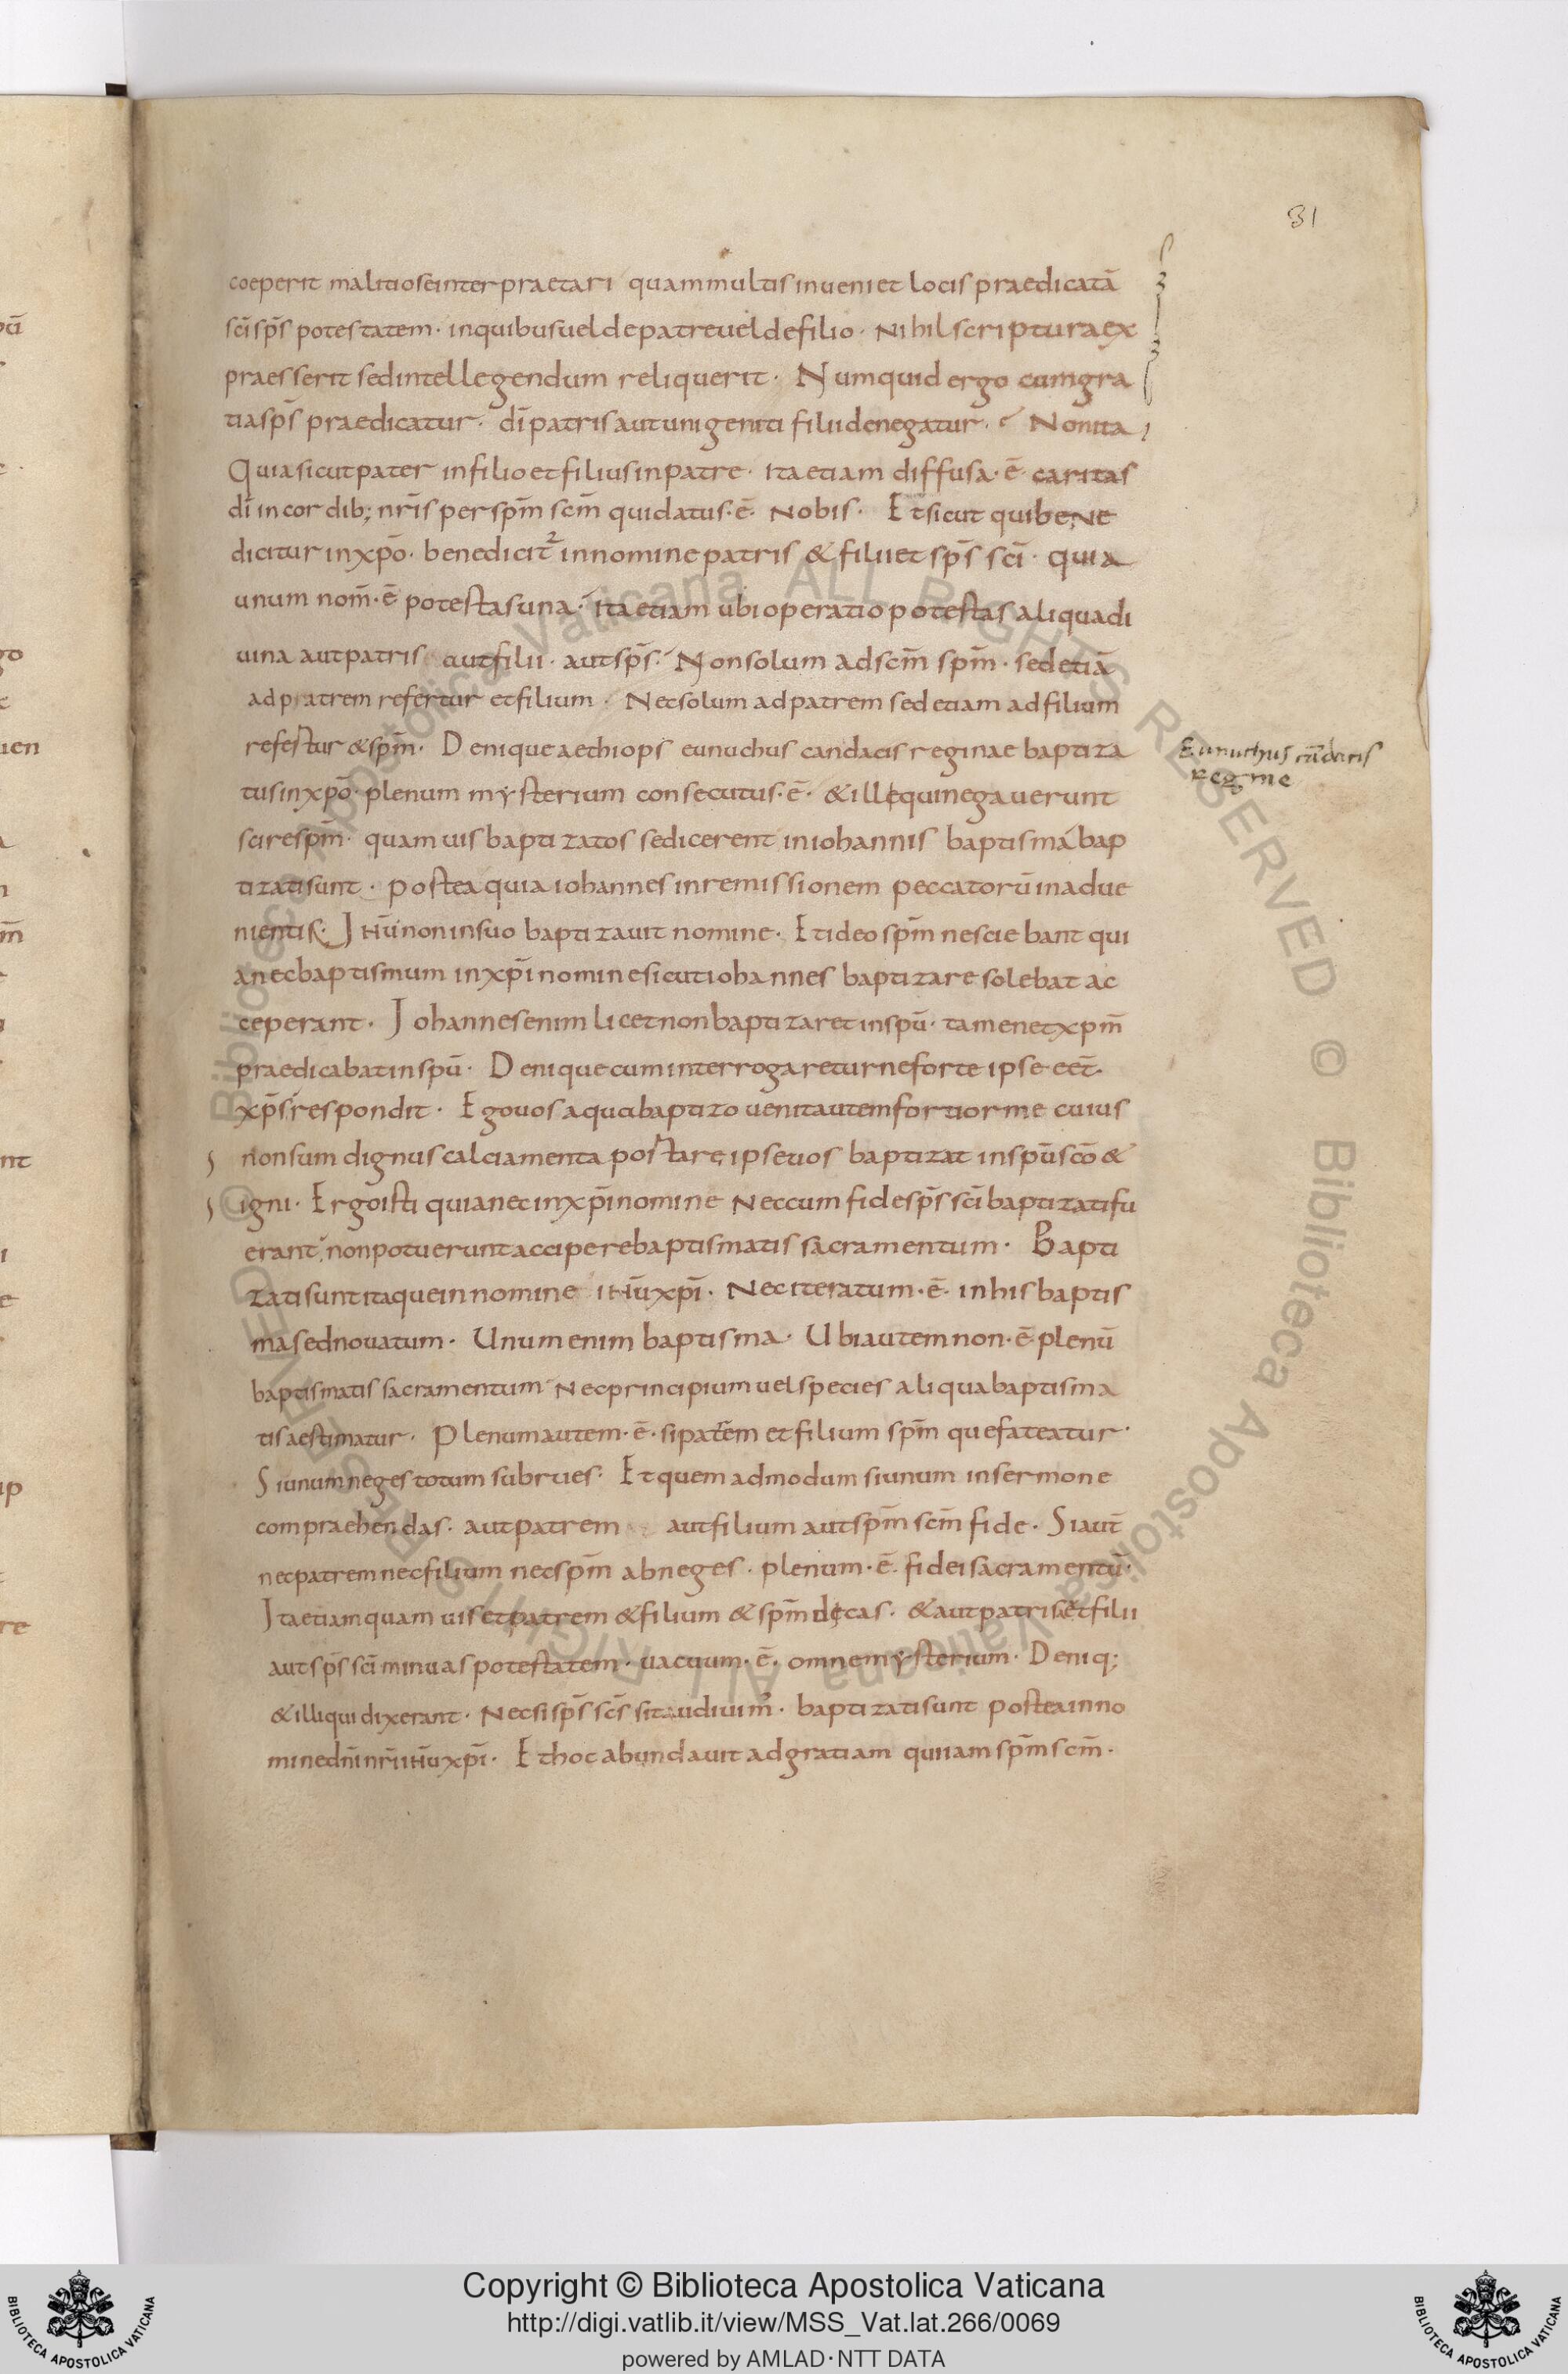 31
coeperit malitiose interpraetari quam multis inueniet locis praedicatā
sc̄i sp̄s potestatem· in quibus uel de patre uel de filio· Nihil scriptura ex
praesserit sed intellegendum reliquerit· Numquid ergo cum gra
tia sp̄s praedicatur· dī patris aut unigeniti filii denegatur· Non ita
Quia sicut pater in filio et filius in patre· ita etiam diffusa·ē· caritas
dī in cordib; nr̄is per sp̄m sc̄m qui datus·ē· Nobis· Et sicut qui beNe
dicitur in xp̄o· benedicit̄² in nomine patris & filii et sp̄s sc̄i· quia
unum nom̄·ē potestas una· Ita etiam ubi operatio potestas aliqua di
uina aut patris aut filii· aut sp̄s· Non solum ad sc̄m sp̄m· sed etiā
ad patrem refertur et filium· Nec solum ad patrem sed etiam ad filium
refertur & sp̄m· Denique aethiops eunuchus candacis reginae baptiza
Eunuchus cādacis
Regine
tus in xp̄o· plenum mysterium consecutus·ē· & ille qui negauerunt
scire sp̄m· quamuis baptizatos se dicerent in iohannis baptisma bap
tizati sunt· postea quia iohannes in remissionem peccatorū in adue
nientis· Ihū non in suo baptizauit nomine· Et ideo sp̄m nesciebant qui
a nec baptismum in xp̄i nomine sicut iohannes baptizare solebat ac
ceperant· Johannes enim licet non baptizaret in spū· tamen et xp̄m
praedicabat in spū· Denique cum interrogaretur ne forte ipse eet̄·
xp̄s respondit· Ego uos aqua baptizo uenit autem fortior me cuius
non sum dignus calciamenta portare, ipse uos baptizat in spū sc̄o &
igni· Ergo isti quia nec in xp̄i nomine Nec cum fide sp̄s sc̄i baptizati fu
erant, non potuerunt accipere baptismatis sacramentum· Bapti
zati sunt itaque in nomine ihū xp̄i· Nec iteratum·ē· in his baptis
ma sed nouatum· Unum enim baptisma· Ubi autem non·ē· plenū
baptismatis sacramentum Nec principium uel species aliqua baptisma
tis aestimatur· Plenum autem·ē· si patrem et filium sp̄m que fateatur·
Si unum neges totum subrues· Et quemadmodum si unum in sermone
compraehendas· aut patrem aut filium aut sp̄m sc̄m fide· Si aut̄
nec patrem nec filium nec sp̄m abneges· plenum·ē· fidei sacramentū·
Ita etiam quamuis et patrem & filium & sp̄m dicas· & aut patris et filii
aut sp̄s sc̄i minuas potestatem· uacuum·ē· omne mysterium· Deniq;
& illi qui dixerant· Nec si sp̄s sc̄s sit audiuim²· baptizati sunt postea in no
mine dn̄i nr̄i ihū xp̄i· Et hoc abundauit ad gratiam qui iam sp̄m sc̄m·
Copyright © Biblioteca Apostolica Vaticana
http://digi.vatlib.it/view/MSS_Vat.lat.266/0069
powered by AMLAD·NTT DATA
BIBLIOTECA APOSTOLICA VATICANA
BIBLIOTECA APOSTOLICA VATICANA
© Biblioteca Apostolica Vaticana ALL RIGHTS RESERVED
© Biblioteca Apostolica Vaticana ALL RIGHTS RESERVED